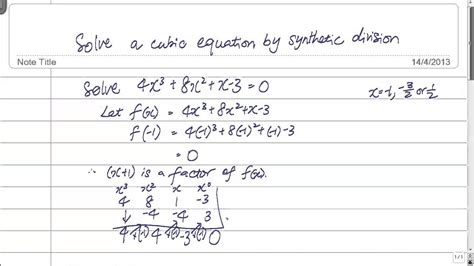 Solve a cubic equation by synthetic division
Note Title
14/4/2013
Solve 4x³ + 8x² + x - 3 = 0
x = -1, -3/2 or 1/2
Let f(x) = 4x³ + 8x² + x - 3
f(-1) = 4(-1)³ + 8(-1)² + (-1) - 3
= 0
∴ (x+1) is a factor of f(x).
x³ x² x x⁰
4 8 1 -3
↓ -4 -4 3
4 4(-1) 4 4(-1) -3 0
1/1